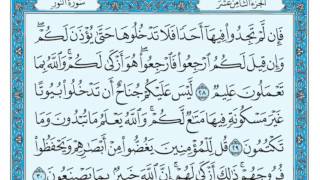 الجزء الثامن عشر
سورة النور
فَإِن لَّمْ تَجِدُوا۟ فِيهَآ أَحَدًا فَلَا تَدْخُلُوهَا حَتَّىٰ يُؤْذَنَ لَكُمْ ۖ
وَإِن قِيلَ لَكُمُ ٱرْجِعُوا۟ فَٱرْجِعُوا۟ ۖ هُوَ أَزْكَىٰ لَكُمْ ۚ وَٱللَّهُ بِمَا
تَعْمَلُونَ عَلِيمٌ ٢٨ لَّيْسَ عَلَيْكُمْ جُنَاحٌ أَن تَدْخُلُوا۟ بُيُوتًا
غَيْرَ مَسْكُونَةٍ فِيهَا مَتَـٰعٌ لَّكُمْ ۚ وَٱللَّهُ يَعْلَمُ مَا تُبْدُونَ وَمَا
تَكْتُمُونَ ٢٩ قُل لِّلْمُؤْمِنِينَ يَغُضُّوا۟ مِنْ أَبْصَـٰرِهِمْ وَيَحْفَظُوا۟
فُرُوجَهُمْ ۚ ذَٰلِكَ أَزْكَىٰ لَهُمْ ۗ إِنَّ ٱللَّهَ خَبِيرٌۢ بِمَا يَصْنَعُونَ ٣٠